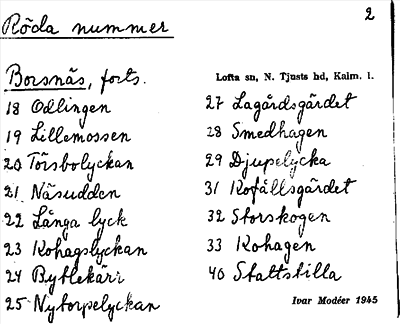 Röda nummer
2
Borsnäs, forts.
Lofta sn, N. Tjusts hd, Kalm. l.
18 Odlingen
19 Lillemossen
20 Törsbolyckan
21 Näsudden
22 Långa lyck
23 Kohagslyckan
24 Byttekärr
25 Nytorpelyckan
27 Lagårdsgärdet
28 Smedhagen
29 Djupelycka
31 Kofällsgärdet
32 Storskogen
33 Kohagen
40 Stattstilla
Ivar Modéer 1945